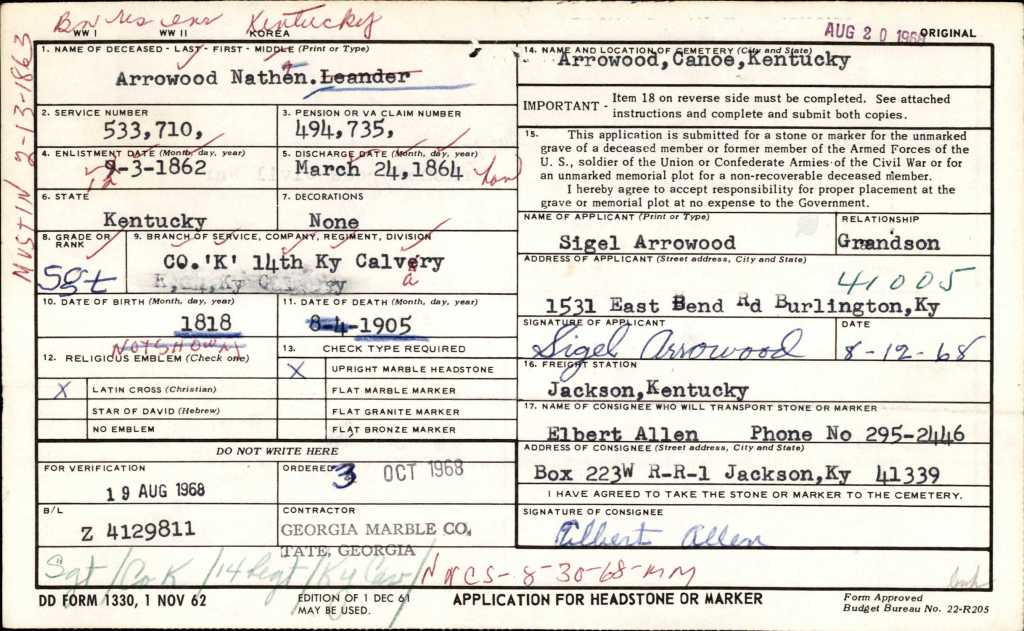 Kentucky
AUG 20 1968
WW I WW II KOREA
ORIGINAL
MUSTIN 2-13-1863
1. NAME OF DECEASED - LAST - FIRST - MIDDLE (Print or Type)
Arrowood Nathen. Leander
a
2. SERVICE NUMBER
533,710,
3. PENSION OR VA CLAIM NUMBER
494,735,
4. ENLISTMENT DATE (Month, day, year)
9-3-1862
12
5. DISCHARGE DATE (Month, day, year)
March 24,1864
6. STATE
Kentucky
7. DECORATIONS
None
8. GRADE OR RANK
Sgt
9. BRANCH OF SERVICE, COMPANY, REGIMENT, DIVISION
CO.'K' 14th Ky Calvery
a
10. DATE OF BIRTH (Month, day, year)
1818
NOT SHOWN
11. DATE OF DEATH (Month, day, year)
8-4-1905
12. RELIGIOUS EMBLEM (Check one)
X LATIN CROSS (Christian)
STAR OF DAVID (Hebrew)
NO EMBLEM
13. CHECK TYPE REQUIRED
X UPRIGHT MARBLE HEADSTONE
FLAT MARBLE MARKER
FLAT GRANITE MARKER
FLAT BRONZE MARKER
DO NOT WRITE HERE
FOR VERIFICATION
19 AUG 1968
ORDERED
3 OCT 1968
B/L
Z 4129811
CONTRACTOR
GEORGIA MARBLE CO.
TATE, GEORGIA
14. NAME AND LOCATION OF CEMETERY (City and State)
Arrowood,Canoe,Kentucky
IMPORTANT - Item 18 on reverse side must be completed. See attached
instructions and complete and submit both copies.
15. This application is submitted for a stone or marker for the unmarked
grave of a deceased member or former member of the Armed Forces of the
U. S., soldier of the Union or Confederate Armies of the Civil War or for
an unmarked memorial plot for a non-recoverable deceased member.
I hereby agree to accept responsibility for proper placement at the
grave or memorial plot at no expense to the Government.
NAME OF APPLICANT (Print or Type)
Sigel Arrowood
RELATIONSHIP
Grandson
ADDRESS OF APPLICANT (Street address, City and State)
41005
1531 East Bend Rd Burlington,Ky
SIGNATURE OF APPLICANT
Sigel Arrowood
DATE
8-12-68
16. FREIGHT STATION
Jackson,Kentucky
17. NAME OF CONSIGNEE WHO WILL TRANSPORT STONE OR MARKER
Elbert Allen Phone No 295-2446
ADDRESS OF CONSIGNEE (Street address, City and State)
Box 223W R-R-1 Jackson,Ky 41339
I HAVE AGREED TO TAKE THE STONE OR MARKER TO THE CEMETERY.
SIGNATURE OF CONSIGNEE
Elbert Allen
Sgt / Co K / 14 Regt / Ky Cav / NNCS-8-30-68-MM
DD FORM 1330, 1 NOV 62
EDITION OF 1 DEC 61
MAY BE USED.
APPLICATION FOR HEADSTONE OR MARKER
Form Approved
Budget Bureau No. 22-R205